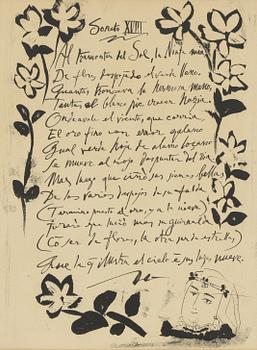 Soneto XVIII
Al tramontar del Sol, la Ninfa mia,
De flores despojando el verde llano,
Quantas troncava la hermosa mano,
Tantas el blanco pie crecer hazia.
Ondeavale el viento, que corria,
El oro fino con error galano,
Qual verde hoja de alamo loçano
Se mueve al rojo despuntar del dia.
Mas luego que ciñó sus sienes bellas
De los varios despojos de su falda
(Termino puesto al oro, y a la nieve)
Juraré que lució mas su guirnalda
(Con ser de flores, la otra ser de estrellas)
Que la q̃ ilustra el cielo en luzes nueve.